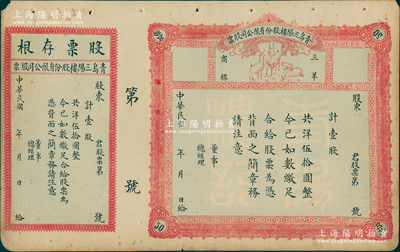 上海陽明拍賣
青島三陽樓股份有限公司股票
50
50
三羊
商標
股東 君股票第 號
計壹股
共洋伍拾圓整
今已如數繳足
合給股票為憑
背面之簡章務
請注意
董事
總經理
中華民國 年 月 日給
50
50
第 號
股票存根
青島三陽樓股份有限公司股票
股東 君股票第 號
計壹股
共洋伍拾圓整
今已如數繳足合給股票為
憑背面之簡章務請注意
董事
總經理
中華民國 年 月 日給
上海陽明拍賣